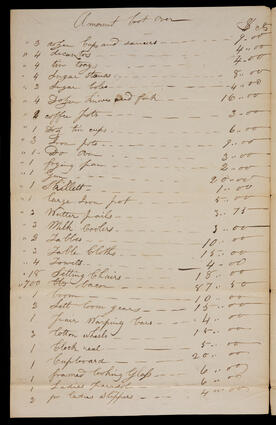 Amount brot over $ cts
" 3 dozen Cups and saucers 9.00
" 4 decanters 4.00
" 4 tin trays 4.00
" 4 Sugar Stands 8.00
" 2 Sugar boles 4.00
" 4 Dozen knives and fork 16.00
2 coffee pots 3.00
1 Doz tin cups 6.00
3 Iron pots 9.00
" 1 Do Oven 3.00
" 1 frying pan 2.00
" 1 20.00
" 1 Skillett 1.00
" 1 large Iron pot 5.00
" 3 Watter pails 3.75
" 3 Milk Coolers 3.00
" 2 Tables 10.00
" 3 Table Cloths 15.00
" 4 4.00
" 18 Setting Chairs 18.00
" 700 lbs bacon 87.50
1 loom 10.00
3 Sett loom gears 15.00
1 pair Warping bars 4.00
3 Cotton wheels 15.00
1 Clock reel 5.00
1 Cupboard 20.00
1 framed looking Glass 6.00
1 Ladies Parasol 6.00
2 pr ladies Slippers 4.00